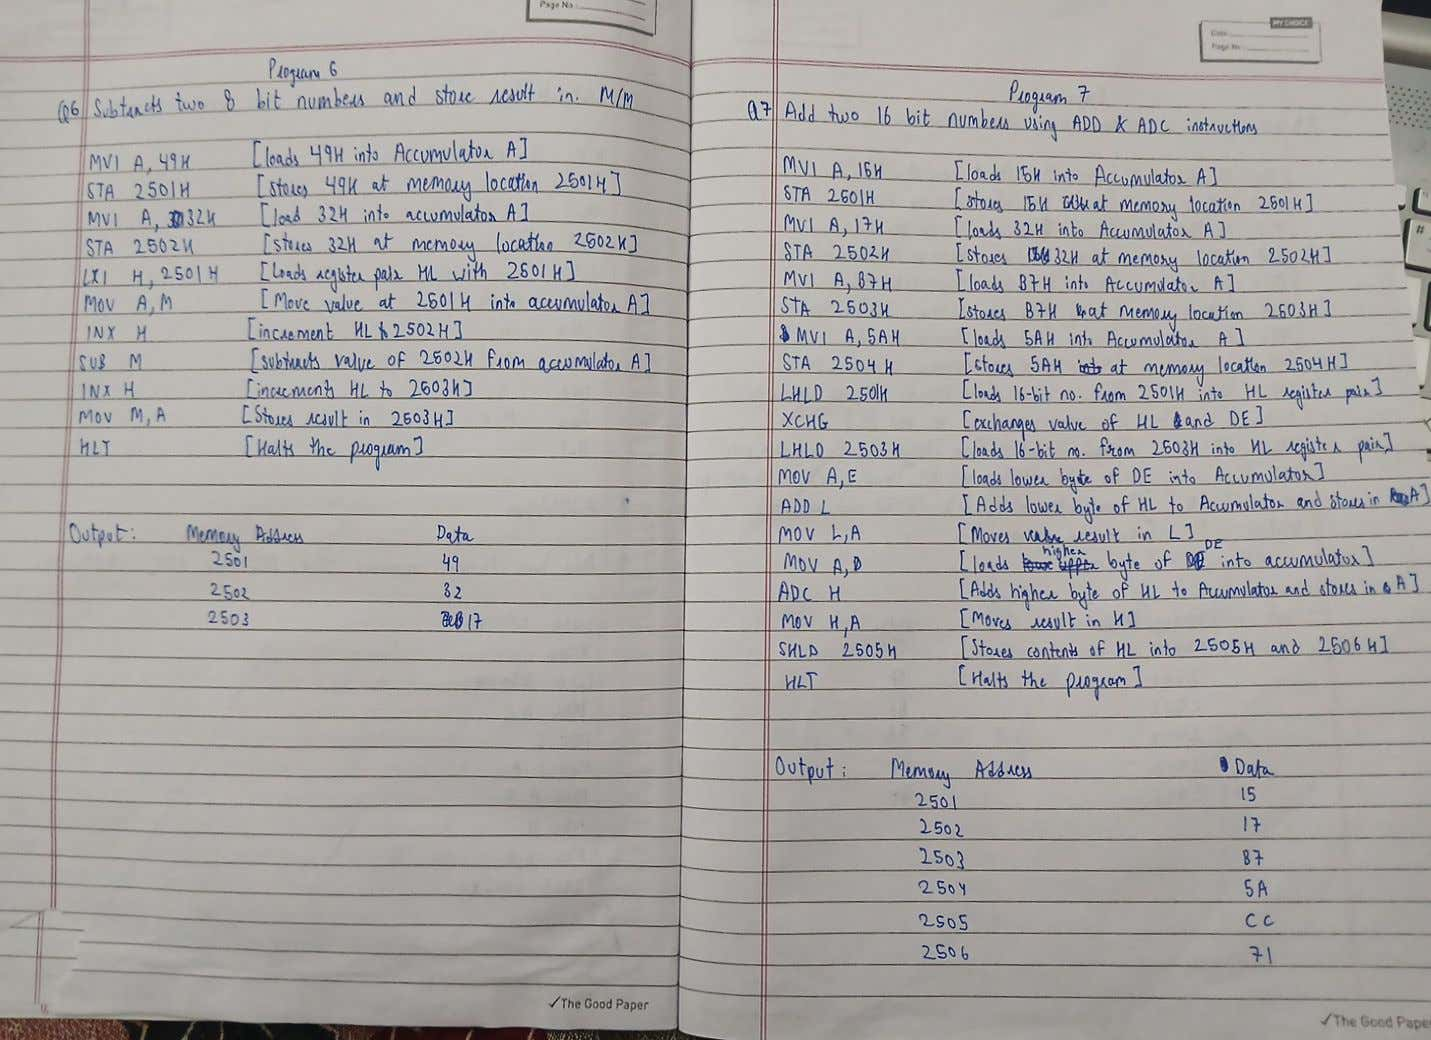 Page No.:
Program 6
Q6 Subtracts two 8 bit numbers and store result in. M/M
MVI A, 49H [loads 49H into Accumulator A]
STA 2501H [stores 49H at memory location 2501H]
MVI A, 32H [load 32H into accumulator A]
STA 2502H [stores 32H at memory location 2502H]
LXI H, 2501H [Loads register pair HL with 2501H]
MOV A, M [Move value at 2501H into accumulator A]
INX H [increment HL to 2502H]
SUB M [subtracts value of 2502H from accumulator A]
INX H [increments HL to 2503H]
MOV M, A [Stores result in 2503H]
HLT [Halts the program]
Output: Memory Address Data
2501 49
2502 32
2503 17
✓The Good Paper
MY CHOICE
Date
Page No.
Program 7
Q7 Add two 16 bit numbers using ADD & ADC instructions
MVI A, 15H [loads 15H into Accumulator A]
STA 2501H [stores 15H at memory location 2501H]
MVI A, 17H [loads 32H into Accumulator A]
STA 2502H [stores 32H at memory location 2502H]
MVI A, B7H [loads B7H into Accumulator A]
STA 2503H [stores B7H at memory location 2503H]
MVI A, 5AH [loads 5AH into Accumulator A]
STA 2504H [stores 5AH at memory location 2504H]
LHLD 2501H [loads 16-bit no. from 2501H into HL register pair]
XCHG [exchanges value of HL and DE]
LHLD 2503H [loads 16-bit no. from 2503H into HL register pair]
MOV A, E [loads lower byte of DE into Accumulator]
ADD L [Adds lower byte of HL to Accumulator and stores in A]
MOV L, A [Moves result in L]
MOV A, D [loads higher byte of DE into accumulator]
ADC H [Adds higher byte of HL to Accumulator and stores in A]
MOV H, A [Moves result in H]
SHLD 2505H [Stores contents of HL into 2505H and 2506H]
HLT [Halts the program]
Output: Memory Address Data
2501 15
2502 17
2503 B7
2504 5A
2505 CC
2506 71
✓The Good Pape